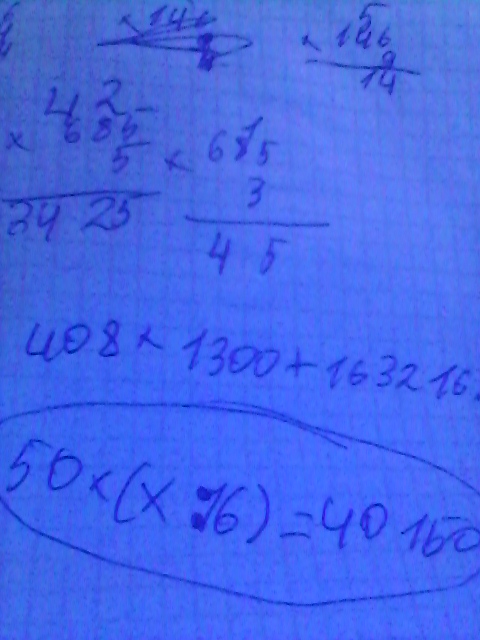 × 146
5
× 146
9
14
4 2
× 685
5
34 25
1
× 685
3
4 5
408 × 1300 + 1632 16
50 × (x 76) = 40 150